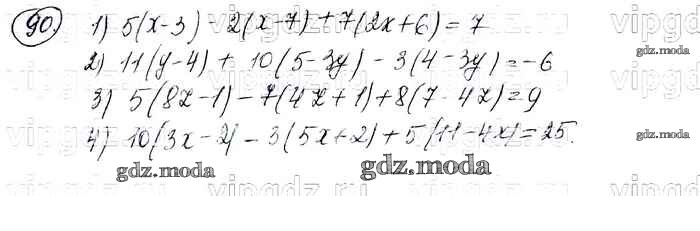 90. 1) 5(x-3) - 2(x-7) + 7(2x+6) = 7
2) 11(y-4) + 10(5-3y) - 3(4-3y) = -6
3) 5(8z-1) - 7(4z+1) + 8(7-4z) = 9
4) 10(3x-2) - 3(5x+2) + 5(11-4x) = 25.
gdz.moda
gdz.moda
gdz.moda
gdz.moda
vipgdz.ru
vipgdz.ru